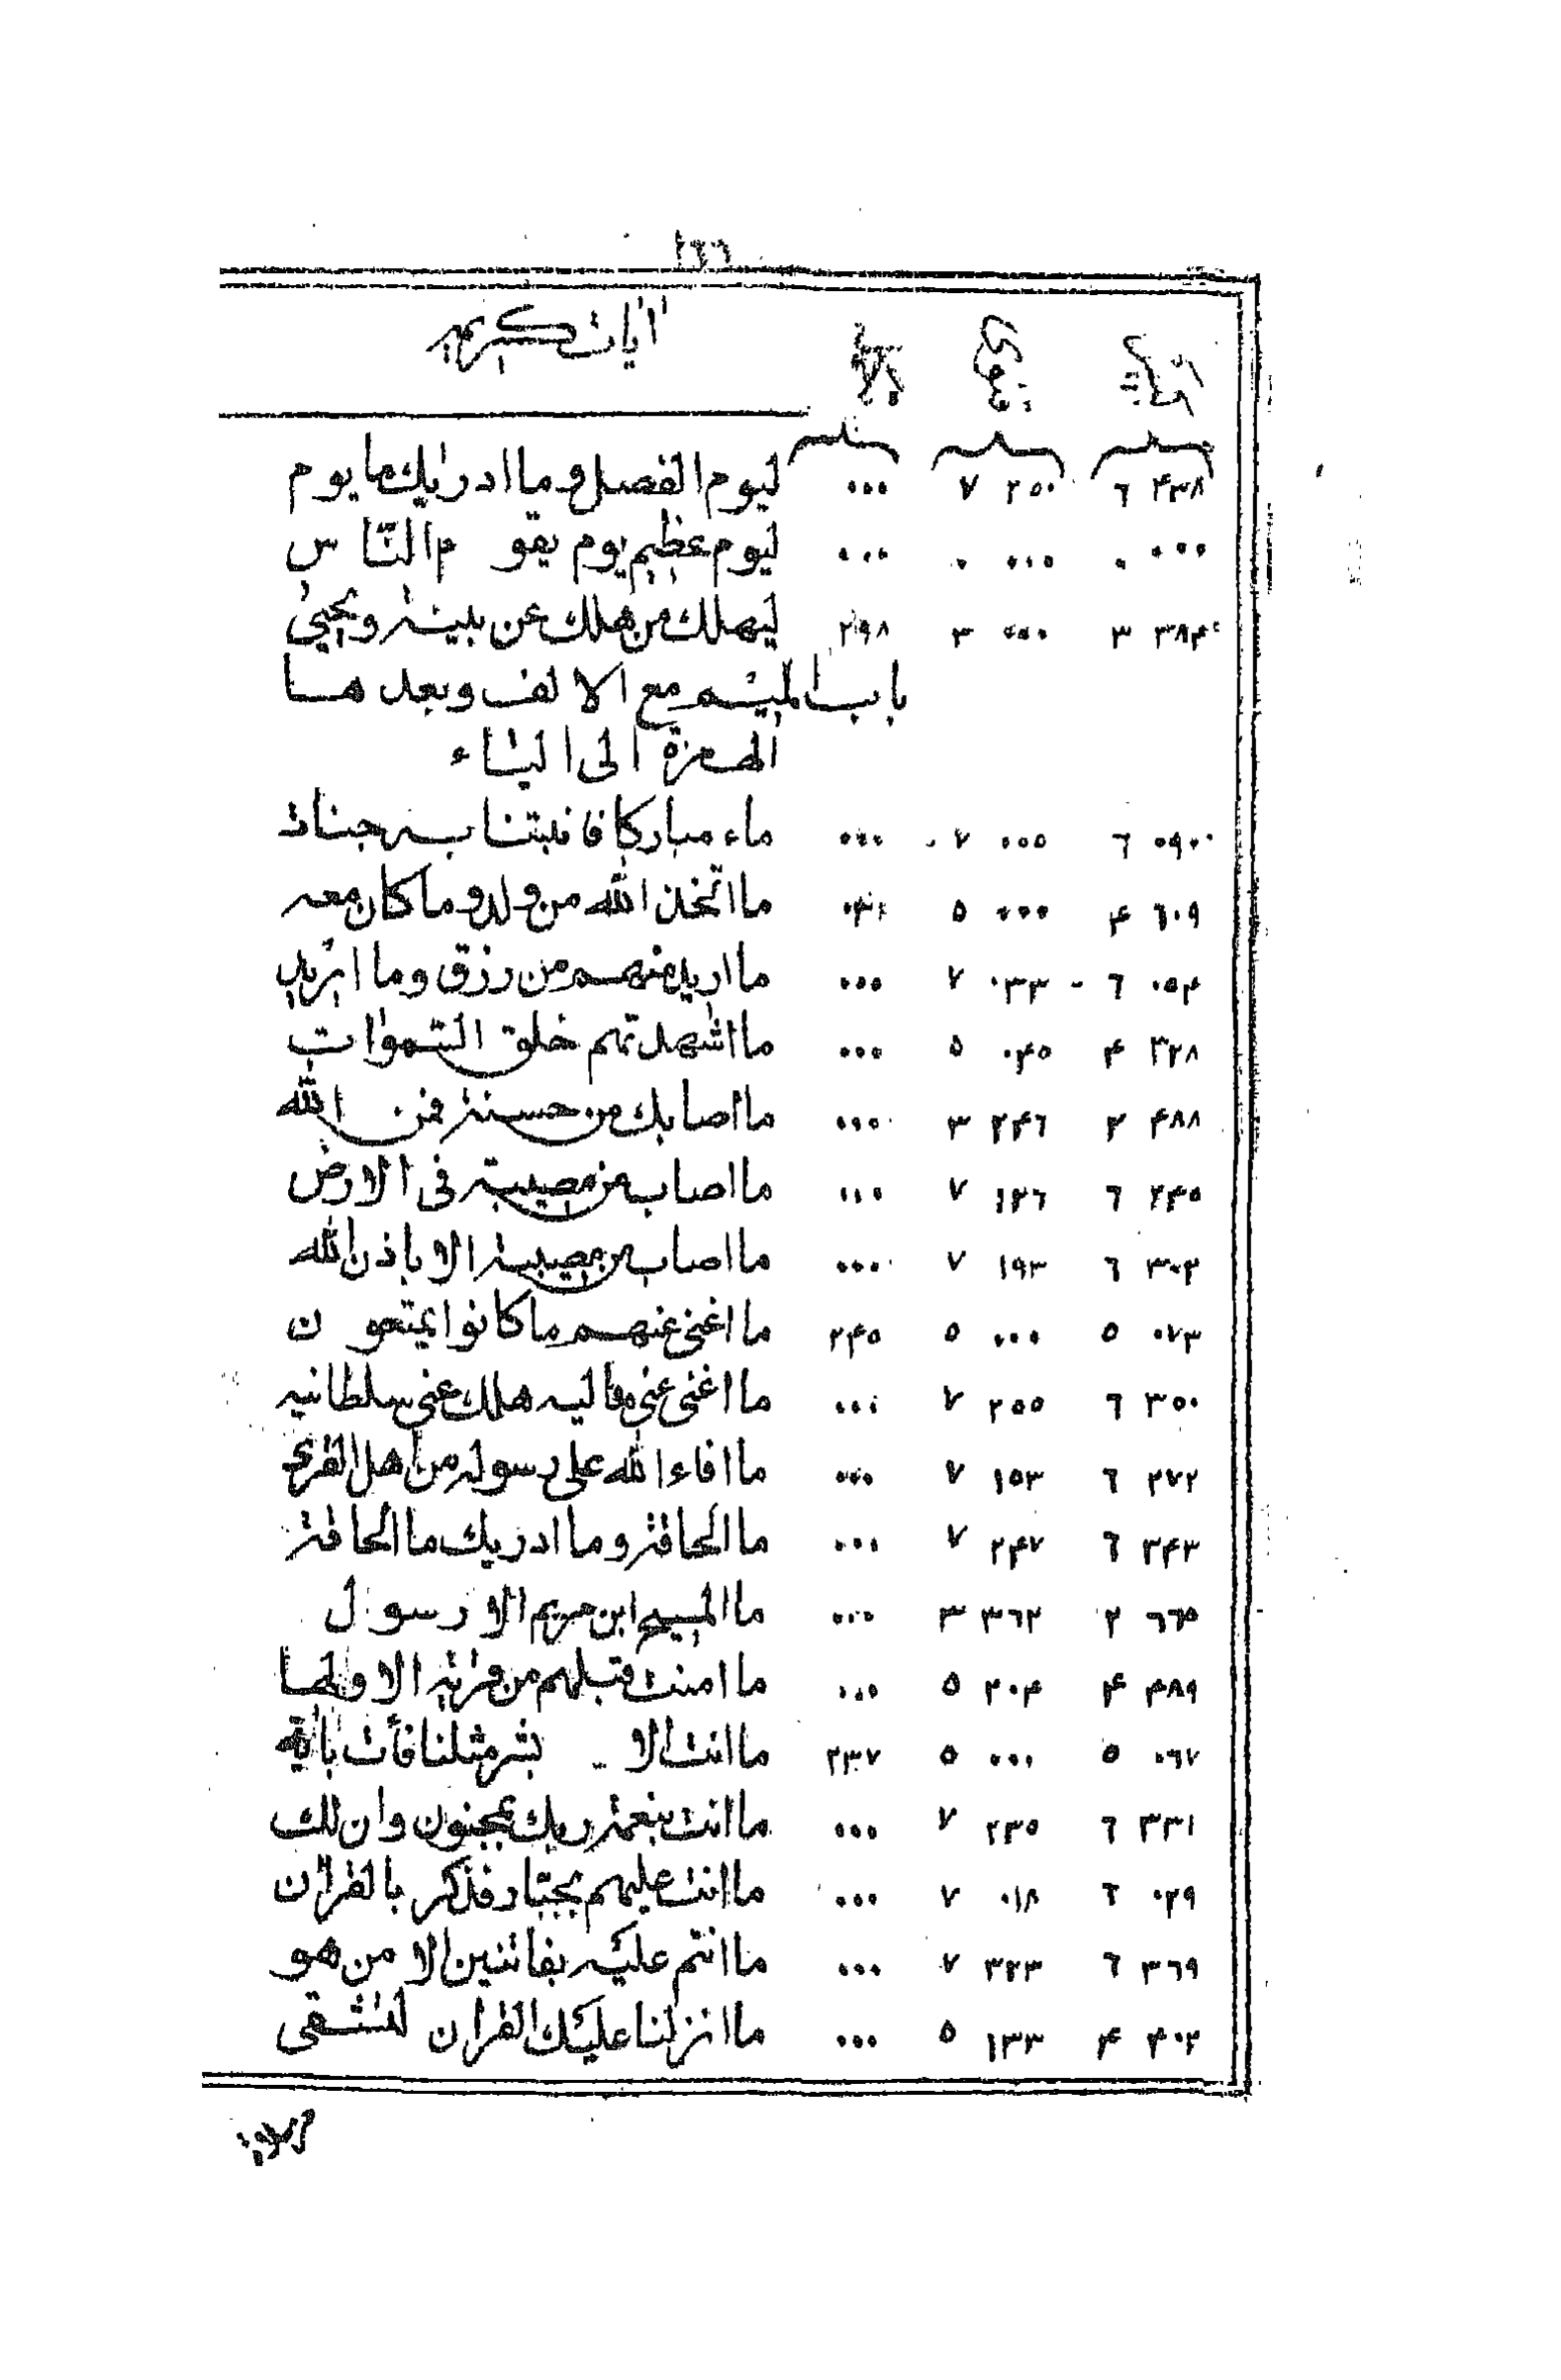 اٰيات كريمه
٤٣٨ ٦ ٢٥٠ ٧ ٠٠٠ ليوم الفصل وما ادرٰيك ما يوم
٠٠٠ ٠ ٠٠٠ ٠ ٠٠٠ ليوم عظيم يوم يقوم النّاس
٣٨٤ ٣ ٠٠٠ ٣ ٢٩٨ ليهلك من هلك عن بينة ويحيىٰ
باب الميم مع الالف وبعدها
الهمزة الى الياء
٠٩٠ ٦ ٠٠٥ ٧ ٠٠٠ ماء مباركا فانبتنا به جنات
٦٠٩ ٤ ٠٠٠ ٥ ما اتخذ الله من ولد وما كان معه
٠٥٤ ٦ ٠٣٣ ٧ ٠٠٠ ما اريد منهم من رزق وما اريد
٣٢٨ ٤ ٠٤٥ ٥ ٠٠٠ ما اشهدتهم خلق السّمٰوات
٤٨٨ ٢ ٢٤٦ ٣ ٠٠٠ ما اصابك من حسنة فمن الله
٢٤٥ ٦ ١٢٦ ٧ ٠٠٠ ما اصاب من مصيبة فى الارض
٣٠٣ ٦ ١٩٣ ٧ ٠٠٠ ما اصاب من مصيبة الا باذن الله
٠٧٣ ٥ ٠٠٠ ٥ ٢٤٥ ما اغنى عنهم ما كانوا يمتعون
٣٥٠ ٦ ٢٥٥ ٧ ٠٠٠ ما اغنى عنى ماليه هلك عنى سلطانيه
٢٧٢ ٦ ١٥٣ ٧ ٠٠٠ ما افاء الله على رسوله من اهل القرى
٣٤٣ ٦ ٢٤٧ ٧ ٠٠٠ ما الحاقة وما ادريك ما الحاقة
٦٦٥ ٢ ٣٦٢ ٣ ٠٠٠ ما المسيح ابن مريم الا رسول
٤٨٩ ٤ ٢٠٤ ٥ ٠٠٠ ما امنت قبلهم من قرية
٠٦٧ ٥ ٠٠٠ ٥ ٢٣٧ ما انت الا بشر مثلنا فأت باٰية
٣٣١ ٦ ٢٣٥ ٧ ٠٠٠ ما انت بنعمة ربك بمجنون وان لك
٠٢٩ ٦ ٠١٨ ٧ ٠٠٠ ما انت عليهم بجبّار فذكر بالقراٰن
٣٦٩ ٦ ٣٢٣ ٧ ٠٠٠ ما انتم عليه بفاتنين الا من هو
٤٠٢ ٤ ١٣٣ ٥ ٠٠٠ ما انزلنا عليك القراٰن لتشقى